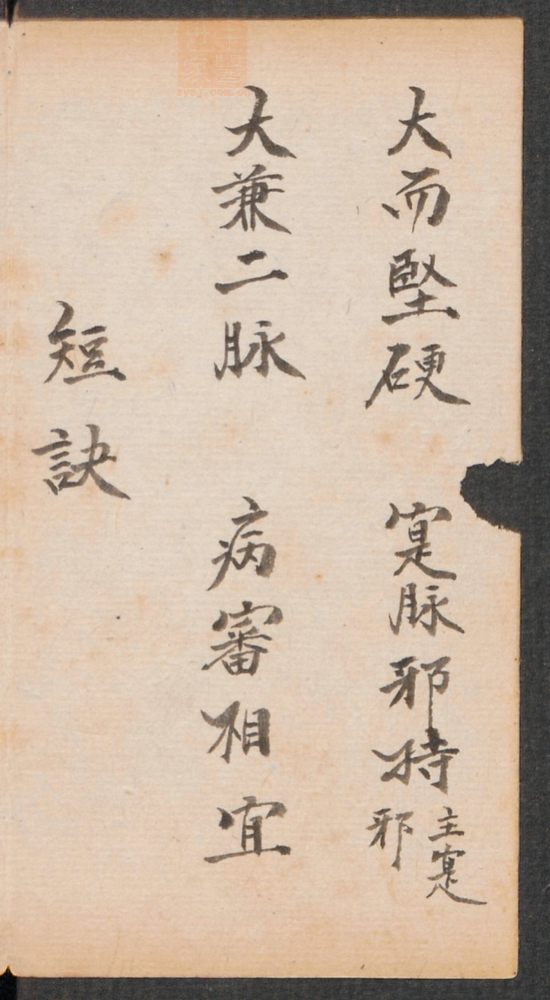 大而堅硬 寔脉邪持 主寔邪
大兼二脉 病審相宜
短訣